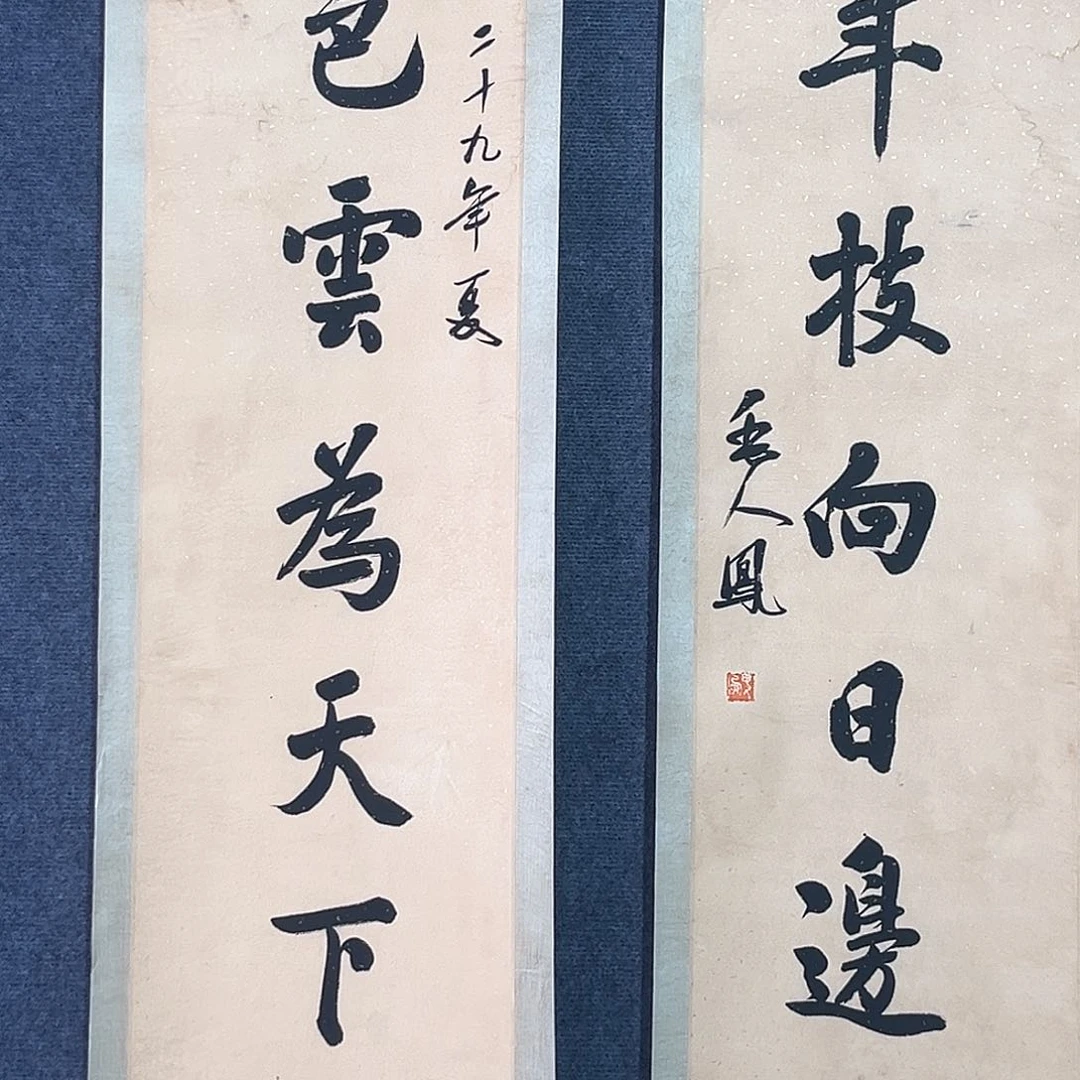 年枝向日邊
毛人鳳
二十九年夏
色雲為天下